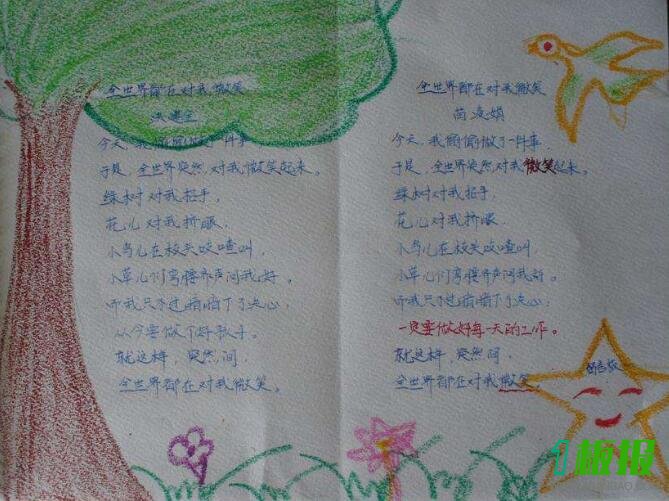 全世界都在对我微笑
洪建全
今天,我偷偷做了一件事
于是,全世界突然,对我微笑起来。
绿树对我招手,
花儿对我挤眼,
小鸟儿在枝头咬喳叫,
小草儿们弯腰齐声问我好。
听我只不过暗暗下了决心:
从今要做个好孩子。
就这样,突然间,
全世界都在对我微笑。
全世界都在对我微笑
苗凌娟
今天,我偷偷做了一件事,
于是,全世界突然,对我微笑起来。
绿树对我招手,
花儿对我挤眼,
小鸟儿在枝头咬喳叫,
小草儿们弯腰齐声问我好。
听我只不过暗暗下了决心:
一定要做好每一天的工作。
就这样,突然间,
全世界都在对我微笑。
1板报